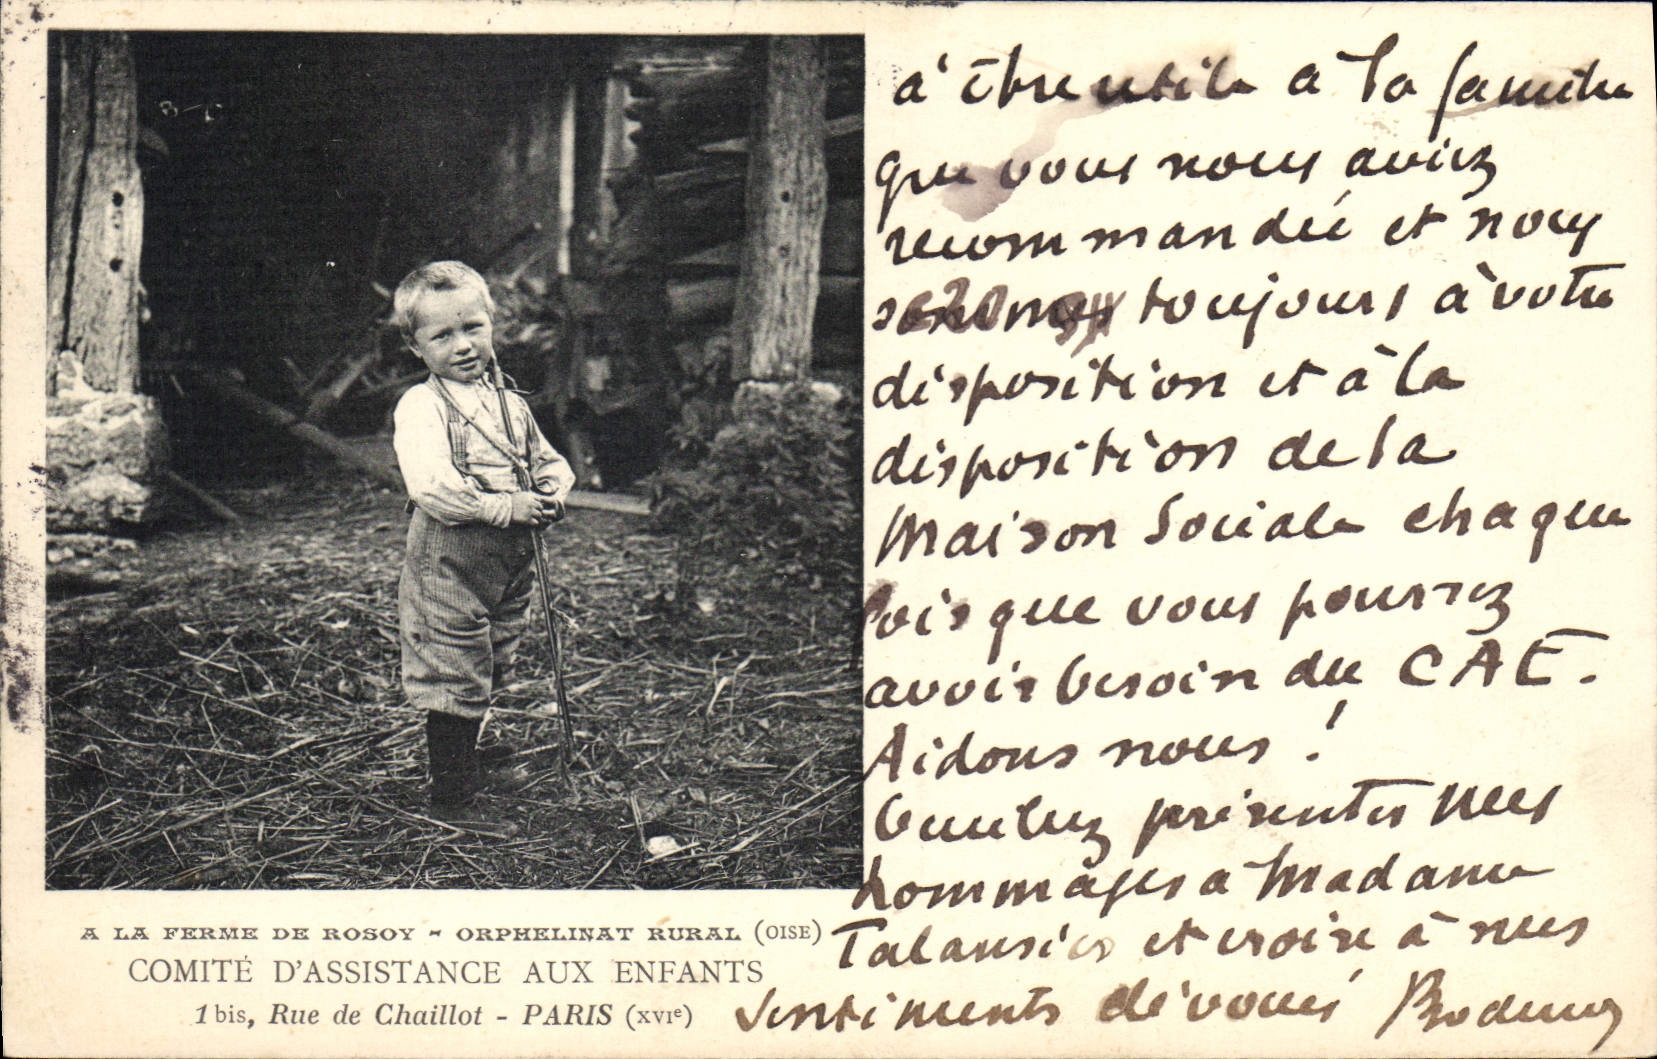 à être utile à la famille
que vous nous aviez
recommandée et nous
sommes toujours à votre
disposition et à la
disposition de la
Maison Sociale chaque
fois que vous pourrez
avoir besoin du CAE.
Aidons nous !
Veuillez présenter mes
hommages a Madame
et croire à mes
sentiments dévoués
A LA FERME DE ROSOY - ORPHELINAT RURAL (OISE)
COMITÉ D'ASSISTANCE AUX ENFANTS
1 bis, Rue de Chaillot - PARIS (XVIe)